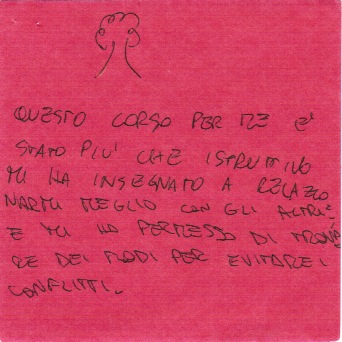 QUESTO CORSO PER ME E'
STATO PIU' CHE ISTRUTTIVO
MI HA INSEGNATO A RELAZIO
NARMI MEGLIO CON GLI ALTRI
E MI HA PERMESSO DI TROVA
RE DEI MODI PER EVITARE I
CONFLITTI.